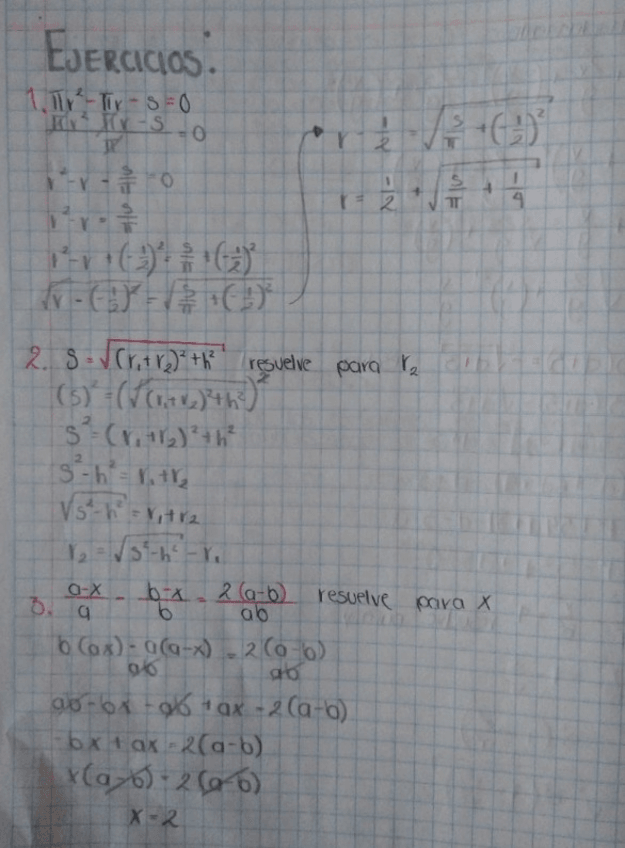 EJERCICIOS:
1. πr² - πr - s = 0
πr² πr - s / π = 0
r² - r - s/π = 0
r² - r = s/π
r² - r + (-1/2)² = s/π + (-1/2)²
√r - (-1/2)² = √s/π + (-1/2)²
r - 1/2 = √s/π + (-1/2)²
r = 1/2 + √s/π + 1/4
2. S = √(r₁+r₂)² + h² resuelve para r₂
(S)² = (√(r₁+r₂)² + h²)²
S² = (r₁+r₂)² + h²
S² - h² = r₁+r₂
√S² - h² = r₁+r₂
r₂ = √S² - h² - r₁
3. a-x/a - b-x/b = 2(a-b)/ab resuelve para x
b(ax) - a(a-x)/ab = 2(a-b)/ab
ab - bx - ab + ax = 2(a-b)
-bx + ax = 2(a-b)
x(a-b) = 2(a-b)
x = 2